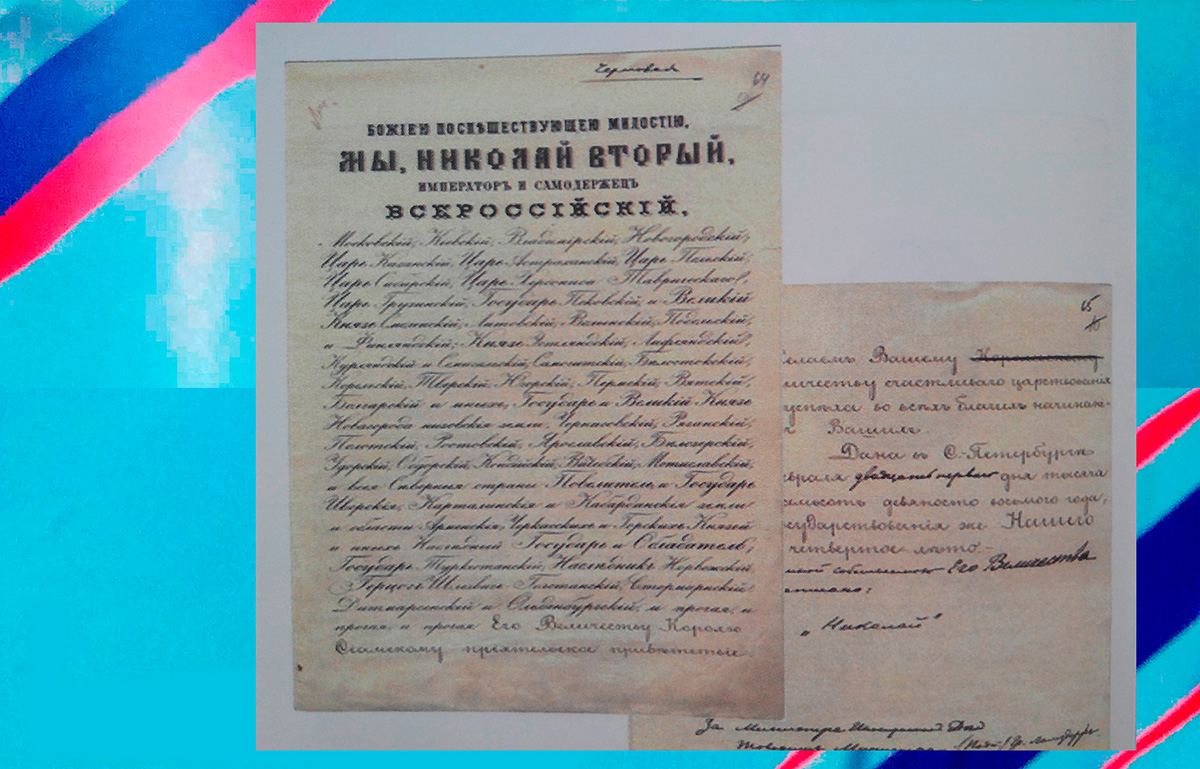 Черновая
64
БОЖІЕЮ ПОСПѢШЕСТВУЮЩЕЮ МИЛОСТІЮ,
МЫ, НИКОЛАЙ ВТОРЫЙ,
ИМПЕРАТОРЪ И САМОДЕРЖЕЦЪ
ВСЕРОССІЙСКІЙ,
Московскій, Кіевскій, Владимірскій, Новогородскій,
Царь Казанскій, Царь Астраханскій, Царь Польскій,
Царь Сибирскій, Царь Херсониса Таврическаго,
Царь Грузинскій, Государь Псковскій, и Великій
Князь Смоленскій, Литовскій, Волынскій, Подольскій,
и Финляндскій; Князь Эстляндскій, Лифляндскій,
Курляндскій и Семигальскій, Самогитскій, Бѣлостокскій,
Корельскій, Тверскій, Югорскій, Пермскій, Вятскій,
Болгарскій и иныхъ; Государь и Великій Князь
Новагорода низовскія земли, Черниговскій, Рязанскій,
Полотскій, Ростовскій, Ярославскій, Бѣлозерскій,
Удорскій, Обдорскій, Кондійскій, Витебскій, Мстиславскій,
и всея Сѣверныя страны Повелитель; и Государь
Иверскія, Карталинскія и Кабардинскія земли
и области Арменскія; Черкасскихъ и Горскихъ Князей
и иныхъ Наслѣдный Государь и Обладатель;
Государь Туркестанскій, Наслѣдникъ Норвежскій,
Герцогъ Шлезвигъ-Голстинскій, Стормарнскій,
Дитмарсенскій и Ольденбургскій, и прочая, и
прочая, и прочая. Его Величеству Королю
Сіамскому пріятельское привѣтствіе.
65
елаемъ Вашему Королевскому
личеству счастливаго царствованія
успѣха во всѣхъ благихъ начинані-
Вашихъ.
Дана въ С.-Петербургѣ
враля двадцать перваго дня тысяча
емьсотъ девяносто восьмого года,
осударствованія же Нашего
четвертое лѣто.
Его Величества
писано:
„Николай"
За Министра Иностранныхъ Дѣлъ
Товарищъ Министра